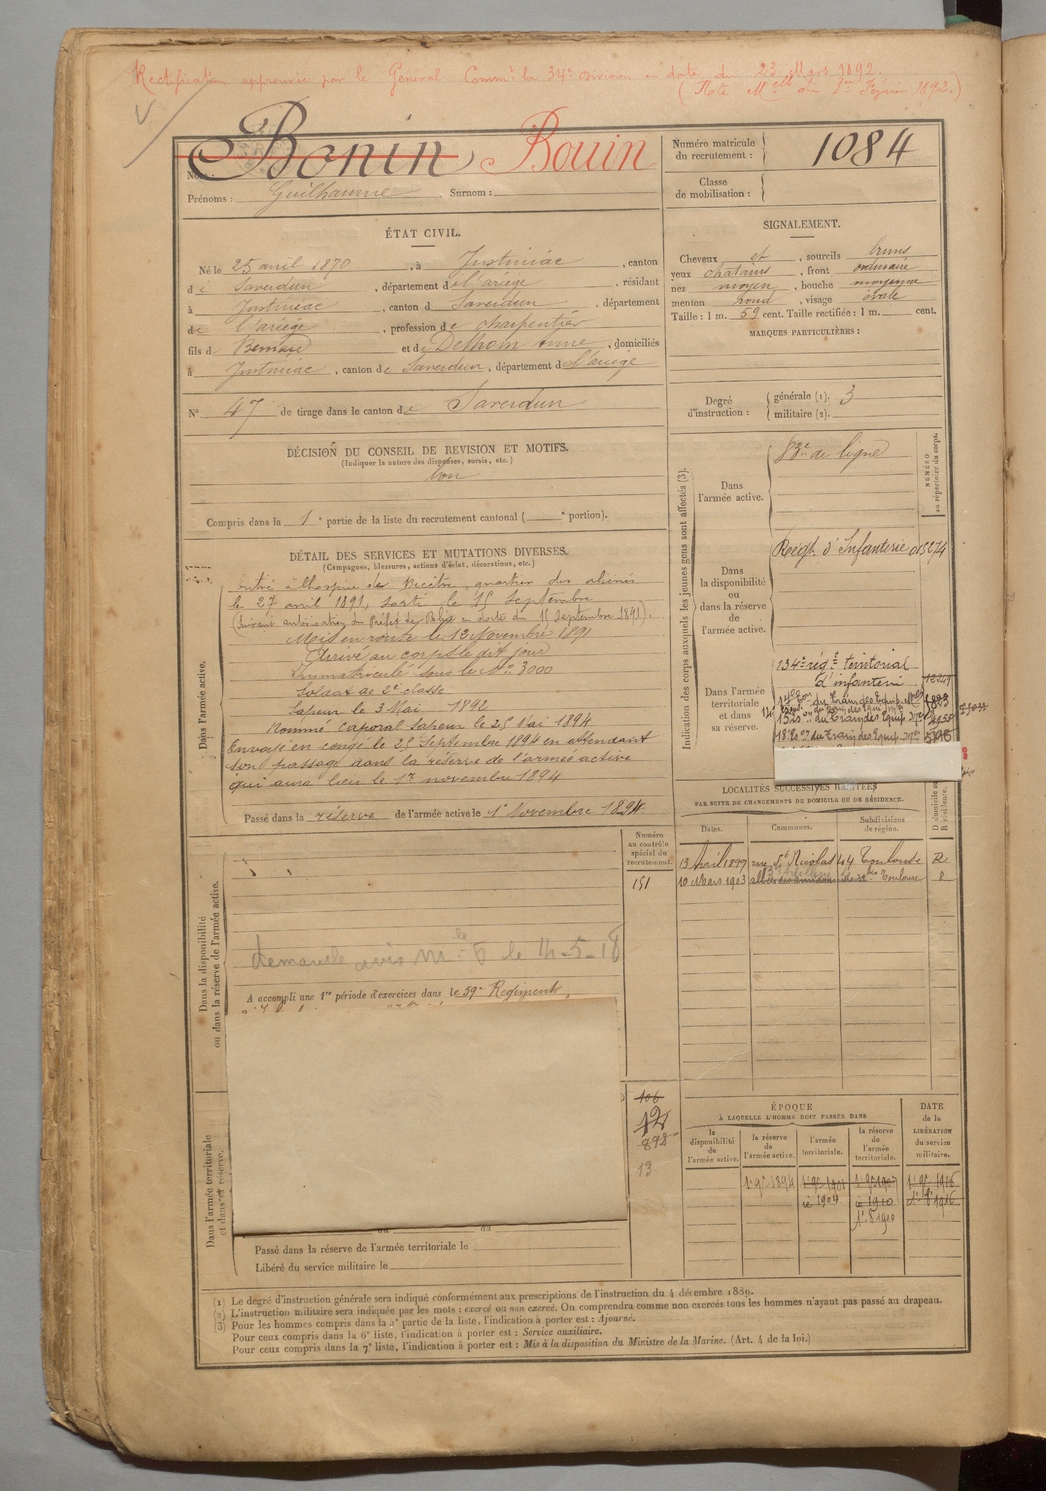 Rectification approuvée par le Général Commt la 34e Division en date du 23 Mars 1892.
(Note Melle du 1er Février 1892.)
Bonin Bouin
Prénoms : Guilhaume Surnom :
Numéro matricule du recrutement : 1084
Classe de mobilisation :
ÉTAT CIVIL.
Né le 25 avril 1870, à Justiniac, canton
de Saverdun, département de l'ariège, résidant
à Justiniac, canton de Saverdun, département
de l'ariège, profession de charpentier
fils de Bernard et de Delhom Anne, domiciliés
à Justiniac, canton de Saverdun, département de l'ariège
N° 47 de tirage dans le canton de Saverdun
SIGNALEMENT.
Cheveux et, sourcils bruns
yeux chatains, front ordinaire
nez moyen, bouche moyenne
menton rond, visage ovale
Taille : 1 m. 59 cent. Taille rectifiée : 1 m. cent.
MARQUES PARTICULIÈRES :
Degré d'instruction : générale (1). 3
militaire (2).
DÉCISION DU CONSEIL DE REVISION ET MOTIFS.
(Indiquer la nature des dispenses, sursis, etc.)
bon
Compris dans la 1e partie de la liste du recrutement cantonal ( e portion).
DÉTAIL DES SERVICES ET MUTATIONS DIVERSES.
(Campagnes, blessures, actions d'éclat, décorations, etc.)
Dans l'armée active.
entré à l'hospice de Bicêtre, quartier des aliénés
le 27 avril 1891, sorti le 15 septembre
(suivant autorisation du Préfet de en date du 15 septembre 1891).
Mis en route le 12 Novembre 1891
Arrivé au corps le dit jour
Immatriculé sous le No 3000
Soldat de 2e classe
Sapeur le 3 Mai 1892
Nommé Caporal Sapeur le 25 Mai 1894
Envoyé en congé le 25 Septembre 1894 en attendant
son passage dans la réserve de l'armée active
qui aura lieu le 1er novembre 1894
Passé dans la réserve de l'armée active le 1er Novembre 1894.
Indication des corps auxquels les jeunes gens sont affectés (3).
NUMÉRO au répertoire du corps.
Dans l'armée active.
de ligne
Dans la disponibilité ou dans la réserve de l'armée active.
Régt d'Infanterie
Dans l'armée territoriale et dans sa réserve.
134e régt territorial
d'infanterie
du Train des Equip. Mres
15e Eson du Train des Equip. Mres
18e Eson du Train des Equip. Mres
LOCALITÉS SUCCESSIVES HABITÉES
PAR SUITE DE CHANGEMENTS DE DOMICILE OU DE RÉSIDENCE.
Dates. Communes. Subdivisions de région. D domicile ou R résidence.
13 Avril 1899 rue St Nicolas 44 Toulouse R
10 Mars 1903 Toulouse
Dans la disponibilité ou dans la réserve de l'armée active.
Numéro au contrôle spécial du recrutement.
151
demande avis Mle 6 le 14-5-18
A accompli une 1re période d'exercices dans le 59e Régiment,
Dans l'armée territoriale et dans sa réserve.
406
12
892
13
Passé dans la réserve de l'armée territoriale le
Libéré du service militaire le
ÉPOQUE
À LAQUELLE L'HOMME DOIT PASSER DANS
la disponibilité de l'armée active.
la réserve de l'armée active.
l'armée territoriale.
la réserve de l'armée territoriale.
DATE de la LIBÉRATION du service militaire.
1er 9bre 1894 1er 9bre 1901 1er 9bre 1907 1er 9bre 1916
1904 1910 1916
(1) Le degré d'instruction générale sera indiqué conformément aux prescriptions de l'instruction du 4 décembre 1889.
(2) L'instruction militaire sera indiquée par les mots : exercé ou non exercé. On comprendra comme non exercés tous les hommes n'ayant pas passé au drapeau.
(3) Pour les hommes compris dans la 2e partie de la liste, l'indication à porter est : Ajourné.
Pour ceux compris dans la 6e liste, l'indication à porter est : Service auxiliaire.
Pour ceux compris dans la 7e liste, l'indication à porter est : Mis à la disposition du Ministre de la Marine. (Art. 4 de la loi.)